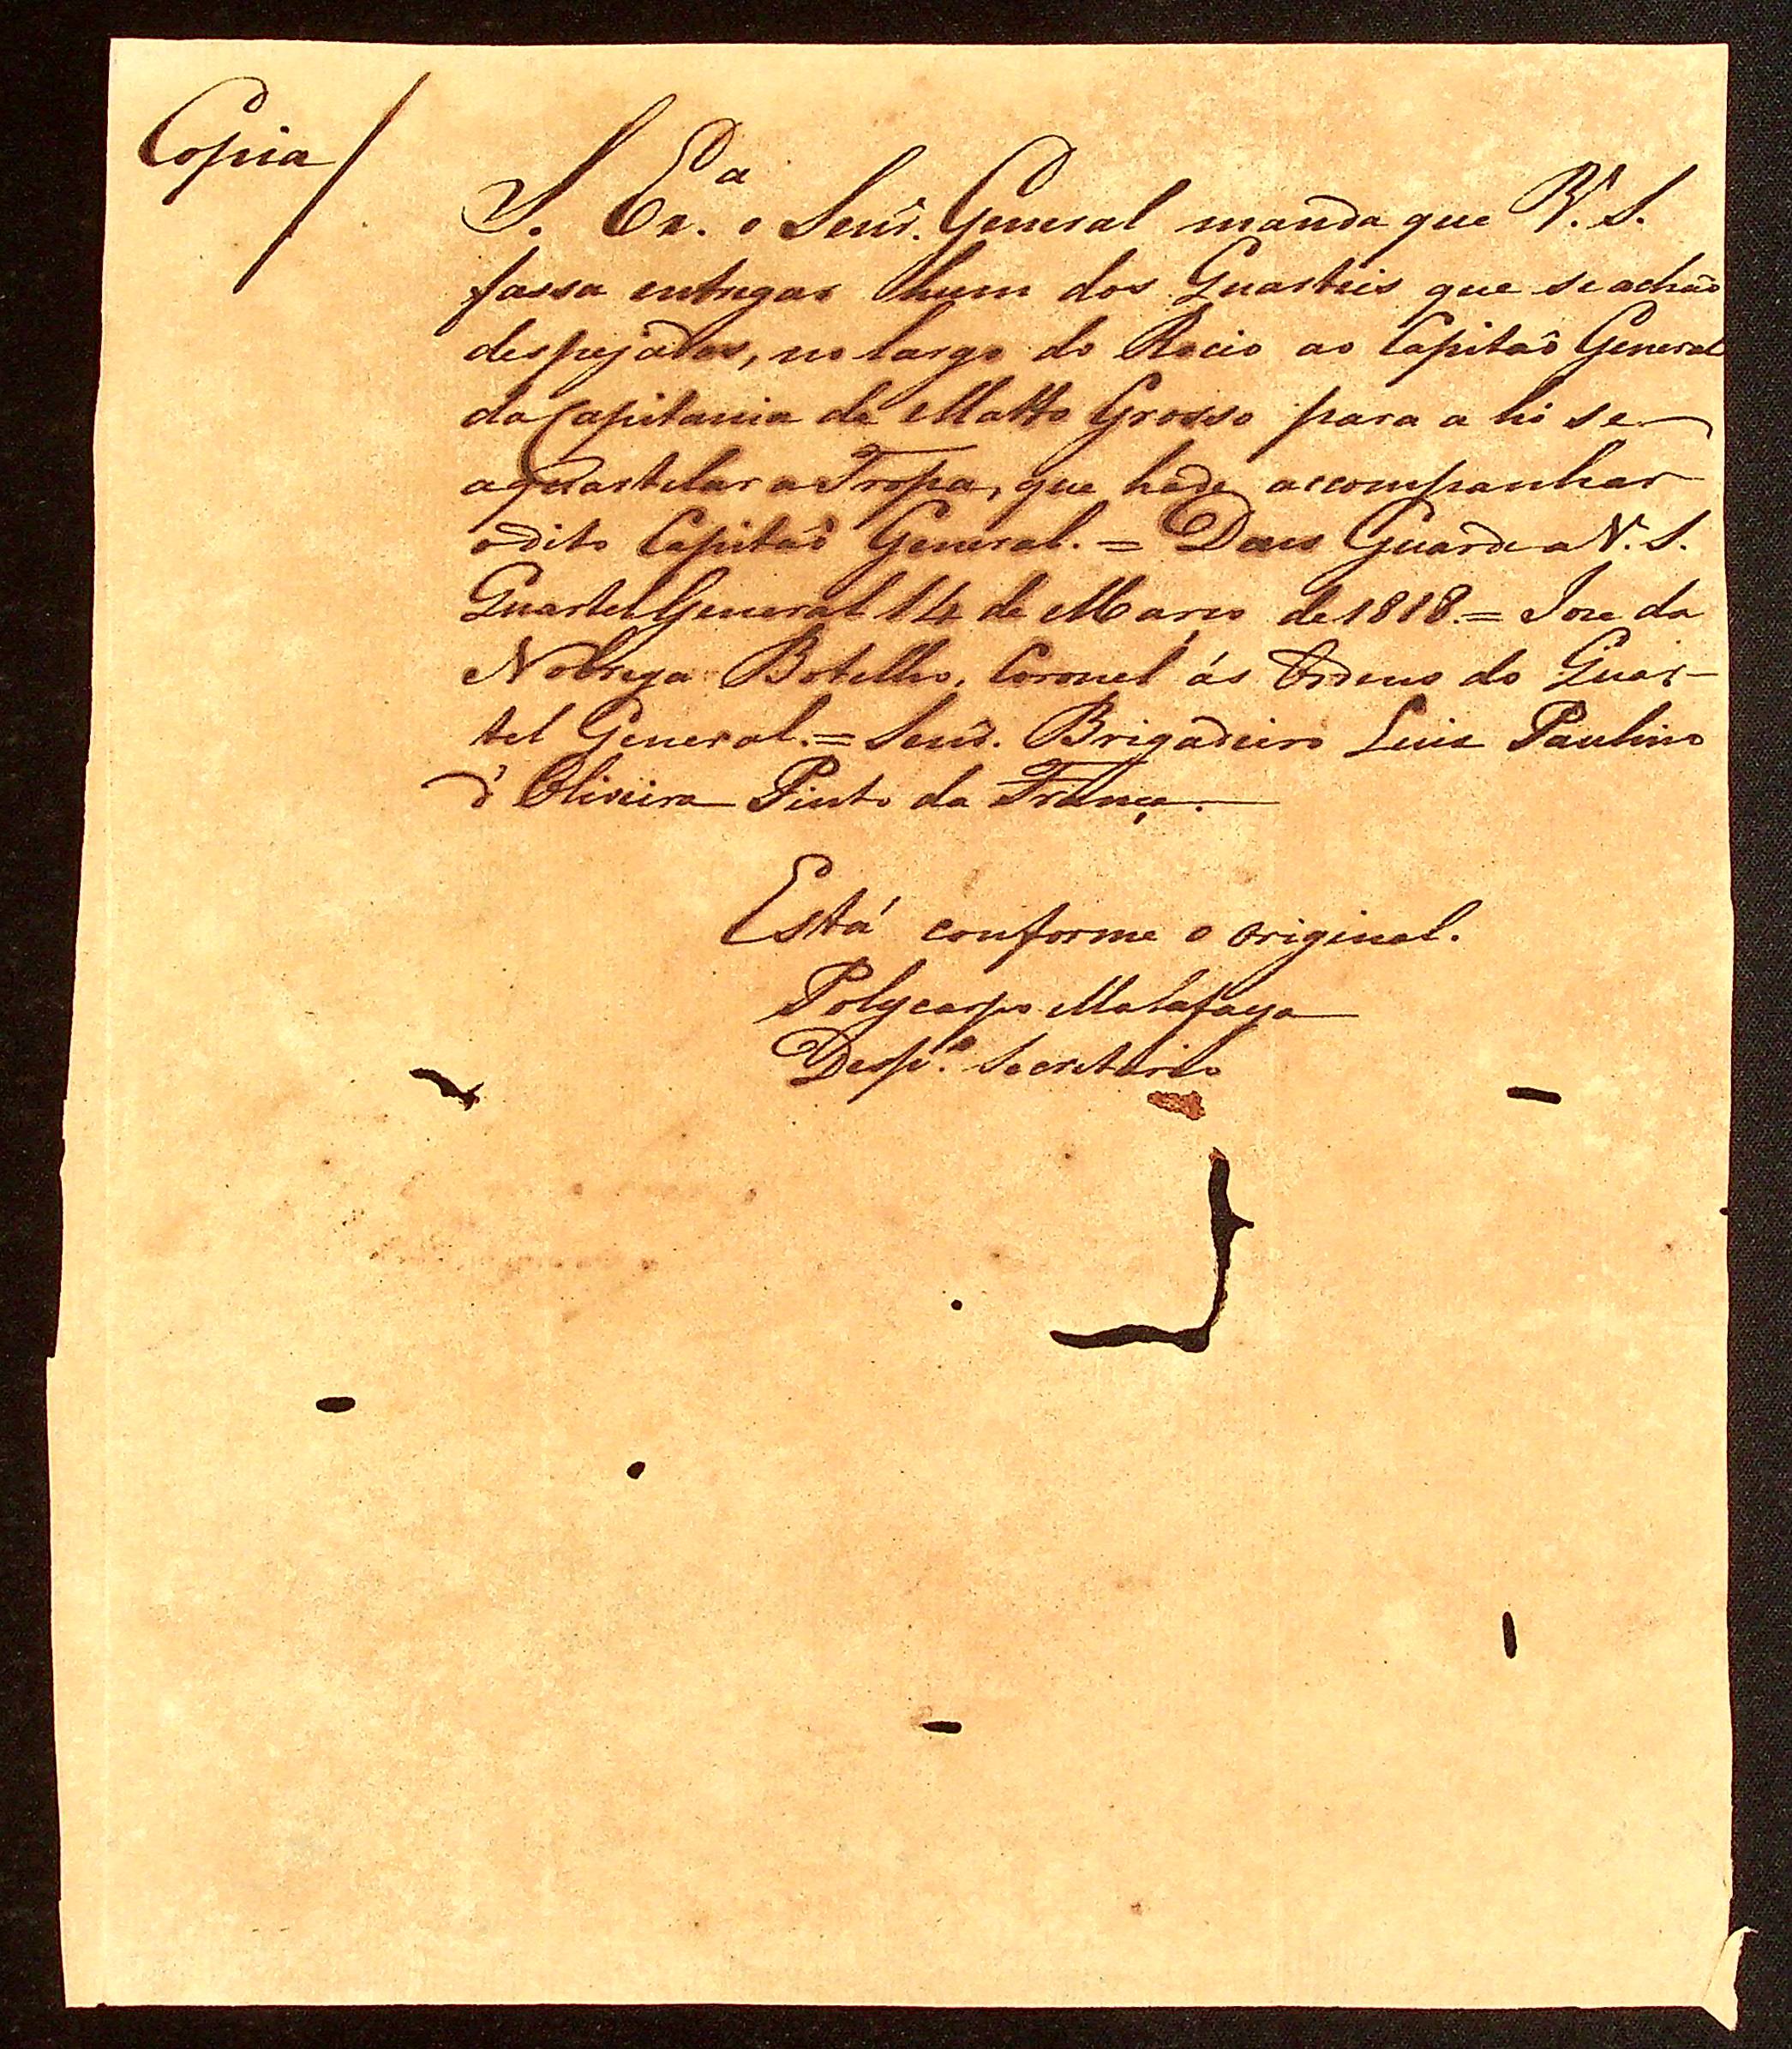 Copia
S. Ex.ª o Senr. General manda que V. S.
fassa entregar hum dos Quarteis que se achaõ
despejados, no largo do Rocio ao Capitaõ General
da Capitania de Matto Grosso para a hi se
aquartelar a Tropa, que hade accompanhar
o dito Capitaõ General. = Deus Guarde a V. S.
Quartel General 14 de Março de 1818. = Joze da
Nobrega Botelho, Coronel ás Ordens do Quar-
tel General. = Senr. Brigadeiro Luis Paulino
d'Oliveira Pinto da França.
Está conforme o original.
Polycarpo Malafaya
Secretario